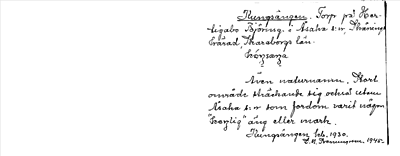 Kungsängen. Torp på Her-
tigabo Björnig. i Åsaka s:n, Skånings
härad, Skaraborgs län.
Även naturnamn. Stort
område sträckande sig också utom
Åsaka s:n som fordom varit någon
"kunglig" äng eller mark.
Kungsängen feb. 1930.
1945.